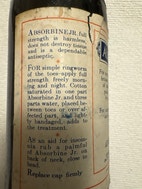 ABSORBINE JR. full
strength is harmless,
does not destroy tissue
and is a dependable
antiseptic.
FOR simple ringworm
of the toes-apply full
strength freely morn-
ing and night. Cotton
saturated in one part
Absorbine Jr. and three
parts water, placed be-
tween toes or over af-
fected part, and light-
ly bandaged, aids
the treatment.
As an aid for
rub a
Absorbine Jr.
back of neck, close to
head.
Replace cap firmly